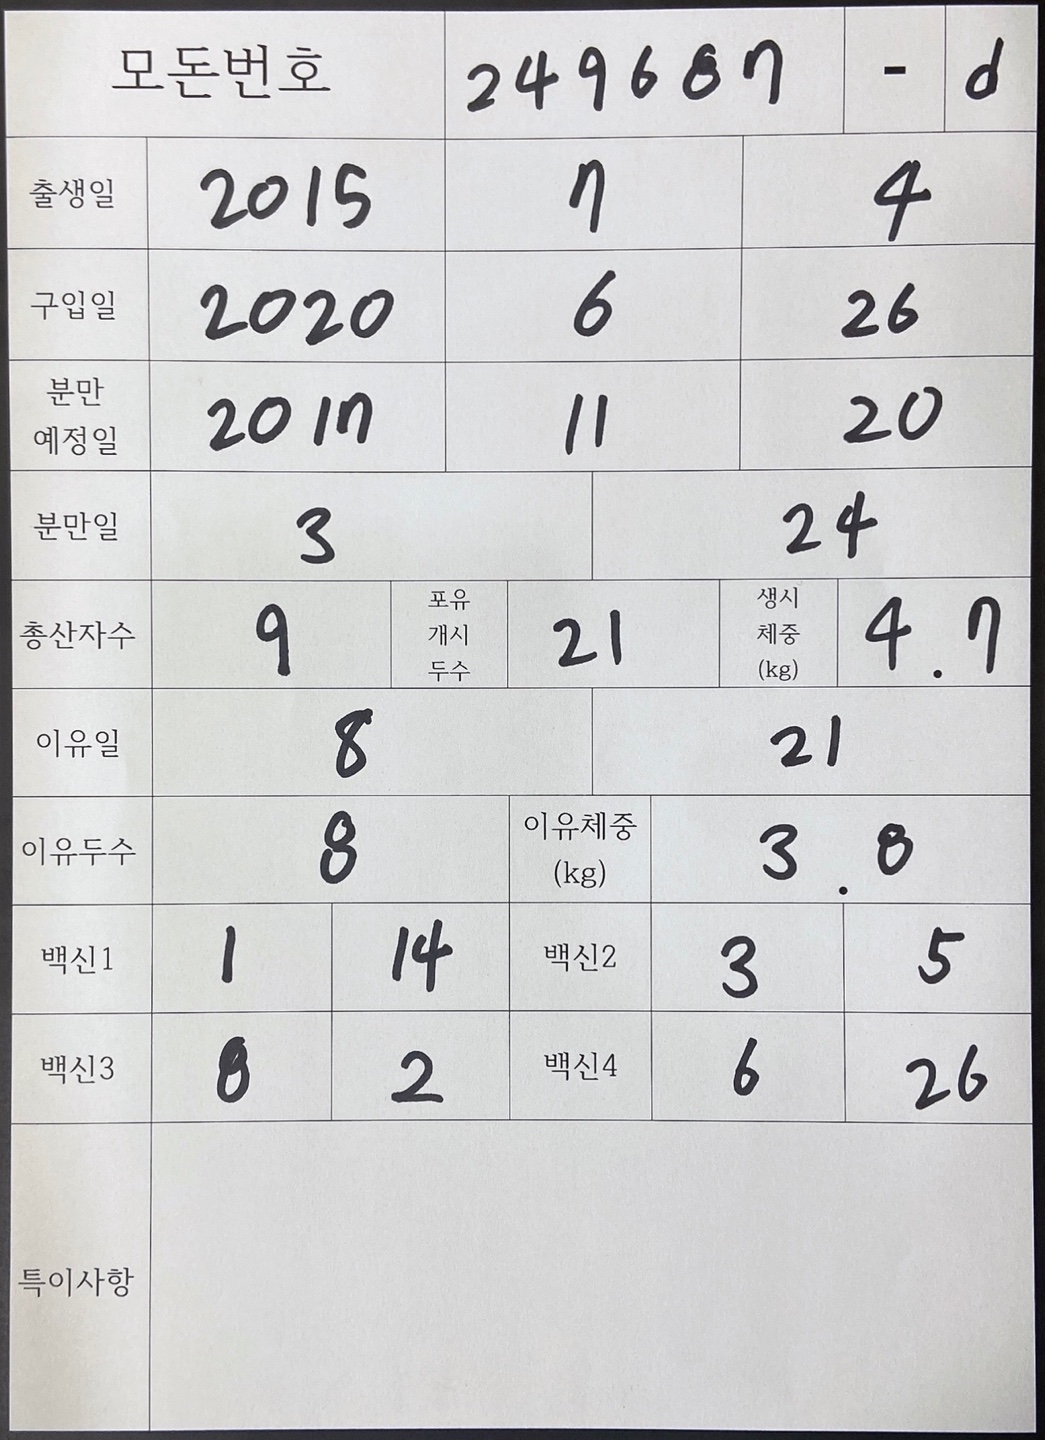 모돈번호 249687 - d
출생일 2015 7 4
구입일 2020 6 26
분만 예정일 2017 11 20
분만일 3 24
총산자수 9 포유 개시 두수 21 생시 체중 (kg) 4.7
이유일 8 21
이유두수 8 이유체중 (kg) 3.8
백신1 1 14 백신2 3 5
백신3 8 2 백신4 6 26
특이사항